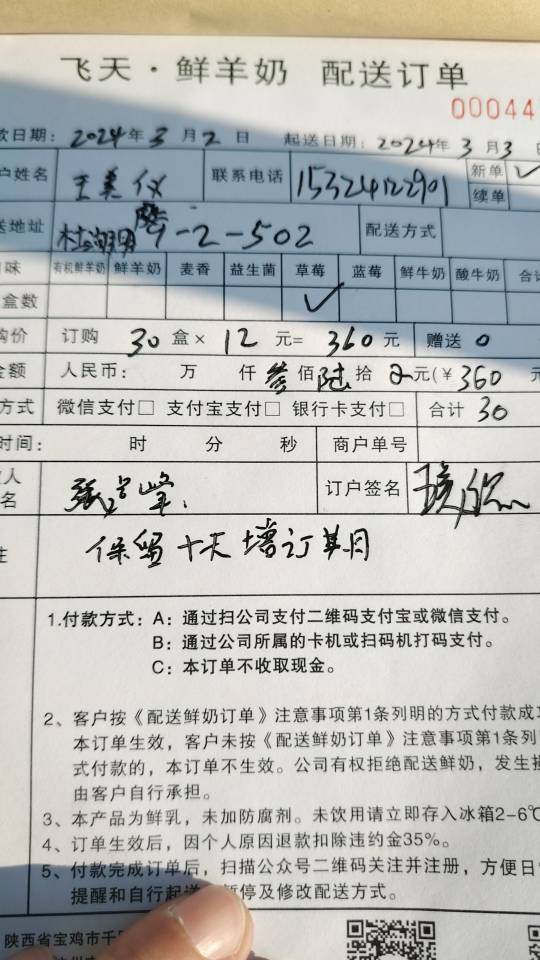 飞天·鲜羊奶 配送订单
00044
款日期：2024年3月2日 起送日期：2024年3月3日
户姓名 王美仪 联系电话 15324122901 新单 ✓
续单
送地址 1-2-502 配送方式
口味 有机鲜羊奶 鲜羊奶 麦香 益生菌 草莓 蓝莓 鲜牛奶 酸牛奶 合计
盒数 ✓
购价 订购 30 盒× 12 元= 360 元 赠送 0
金额 人民币： 万 仟 叁 佰 陆 拾 元(￥360 元
方式 微信支付□ 支付宝支付□ 银行卡支付□ 合计 30
时间： 时 分 秒 商户单号
人
名 订户签名
注 保留十天增订单月
1.付款方式：A：通过扫公司支付二维码支付宝或微信支付。
B：通过公司所属的卡机或扫码机打码支付。
C：本订单不收取现金。
2、客户按《配送鲜奶订单》注意事项第1条列明的方式付款成功
本订单生效，客户未按《配送鲜奶订单》注意事项第1条列
式付款的，本订单不生效。公司有权拒绝配送鲜奶，发生损
由客户自行承担。
3、本产品为鲜乳，未加防腐剂。未饮用请立即存入冰箱2-6℃
4、订单生效后，因个人原因退款扣除违约金35%。
5、付款完成订单后，扫描公众号二维码关注并注册，方便日
提醒和自行起送 暂停及修改配送方式。
陕西省宝鸡市千